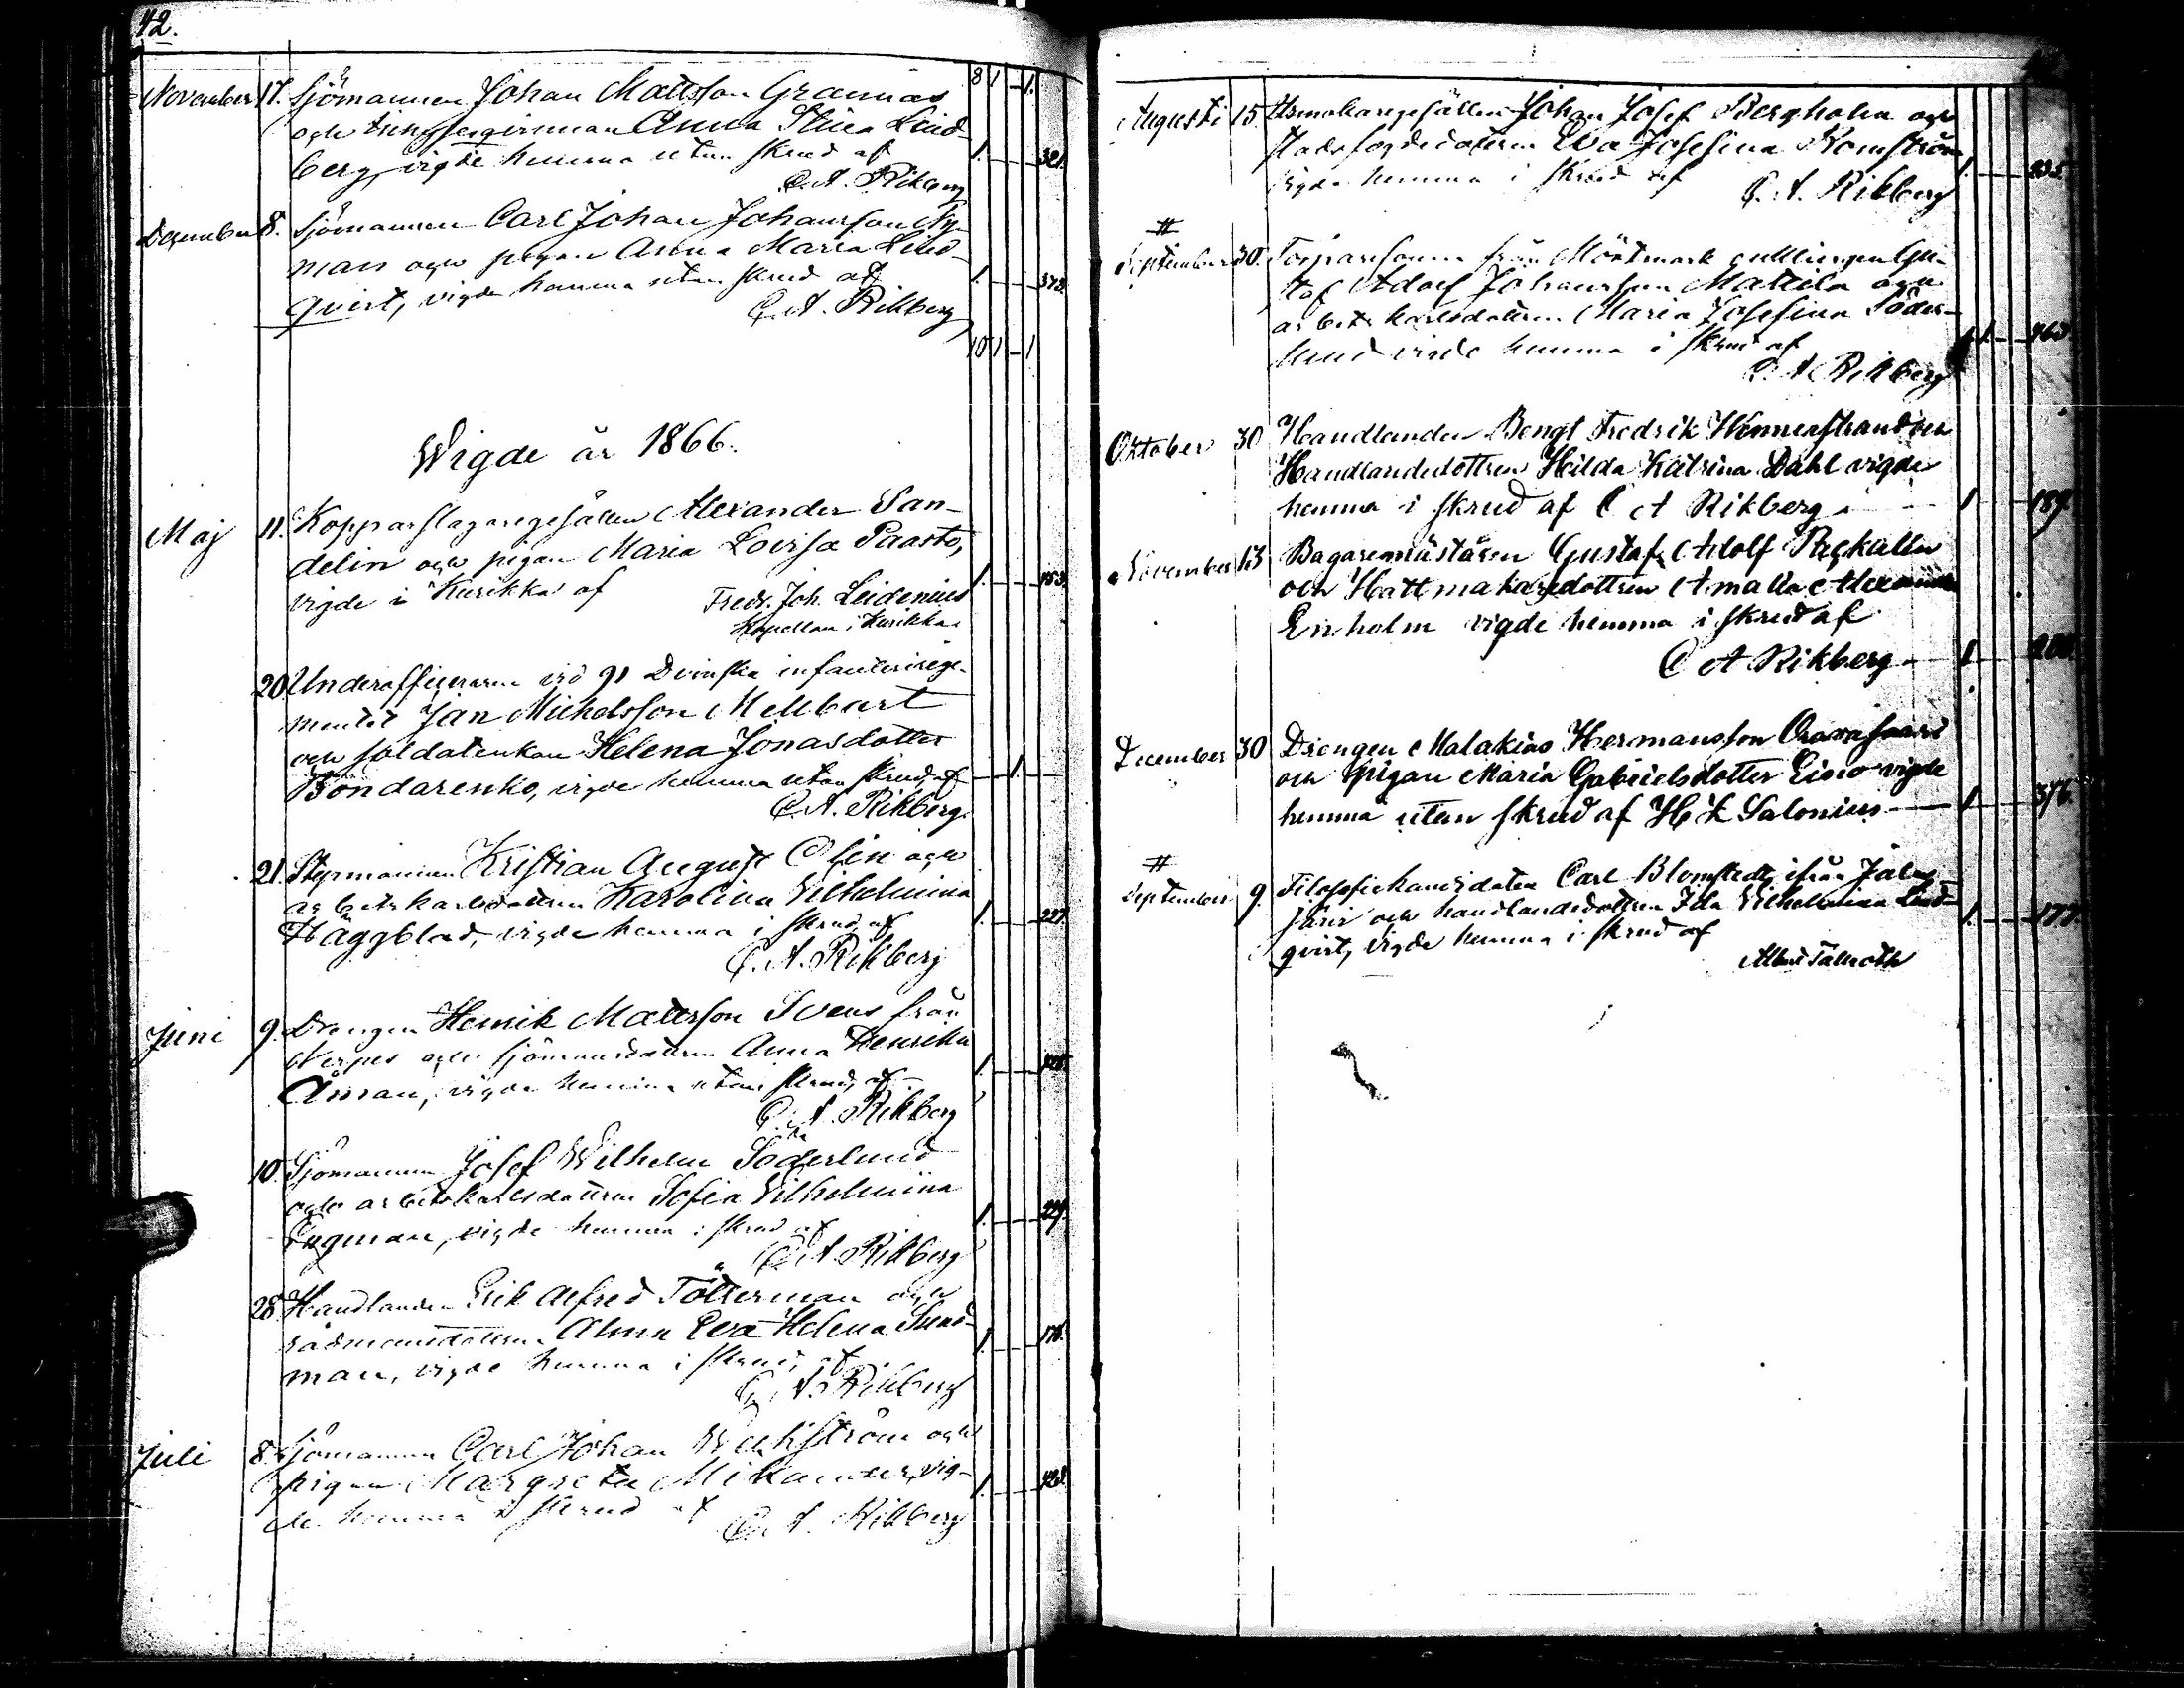 42.
8 1 – 1.
November 17. Sjömannen Johan Mattsson Grannäs
och Anna Stina Lind-
berg, vigde hemma utan skrud af 1. 321.
C. A. Rikberg
December 8. Sjömannen Carl Johan Johansson Ny-
man och pigan Anna Maria Lind-
qvist, vigde hemma utan skrud af 1. 373.
C. A. Rikberg
10 1 – 1
Wigde år 1866.
Maj 11. Kopparslagaregesällen Alexander San-
delin och pigan Maria Lovisa Paasto,
vigde i Kurikka af Fredr. Joh. Leidenius 1. 153.
Kapellan i Kurikka
20. Underofficeraren vid 91 Dvinska infanterirege-
mentet Jan Michelsson Mellbart
och soldatenkan Helena Jonasdotter
Bondarenko, vigde hemma utan skrud af 1.
C. A. Rikberg.
21. Styrmannen Kristian August Olin och
arbetskarlsdottren Karolina Vilhelmina
Häggblad, vigde hemma i skrud af 1. 227.
C. A. Rikberg
Juni 9. Drengen Henrik Mattsson Svens från
Nerpes och sjömansdottren Anna Henrika
Åman, vigde hemma utan skrud, af 1.
C. A. Rikberg
10. Sjömannen Josef Wilhelm Söderlund
och arbetskarlsdottren Sofia Vilhelmina
Engman, vigde hemma i skrud af 1. 229.
C. A. Rikberg
28. Handlanden Erik Alfred Tötterman och
rådmansdottren Alma Eva Helena Sund-
man, vigde hemma i skrud, af 1. 176.
C. A. Rikberg
Juli 8. Sjömannen Carl Johan och
pigan Margreta Mikander, vig-
de hemma i skrud af 1.
C. A. Rikberg
Augusti 15. Urmakaregesällen Johan Josef Bergholm och
stadsfogdedottren Eva Josefina Komström
vigde hemma i skrud af 1. 235.
C. A. Rikberg
#
September 30. Torparesonen från Mörtmark Gu-
staf Adolf Johansson Mattila och
arbetskarlsdottren Maria Josefina Söder-
lund vigde hemma i skrud af 1
C. A. Rikberg
Oktober 30 Handlanden Bengt Fredrik Hennerstrand och
Handlandedottren Hilda Katrina Dahl vigde
hemma i skrud af C A Rikberg 1 189.
November 13 Bagaremästaren Gustaf Adolf
och Hattmakaredottren Amalia Alexandra
Enholm vigde hemma i skrud af
C A Rikberg 1 200.
December 30 Drengen Malakias Hermansson Oravasaari
och pigan Maria Gabrielsdotter vigde
hemma utan skrud af H K Salonius 1 376.
#
September 9. Filosofiekandidaten Carl Blomstedt ifrån Jalas-
järvi och handlandedottren Ida Vilhelmina Lind-
qvist, vigde hemma i skrud af 1. 177.
Albert Tallroth